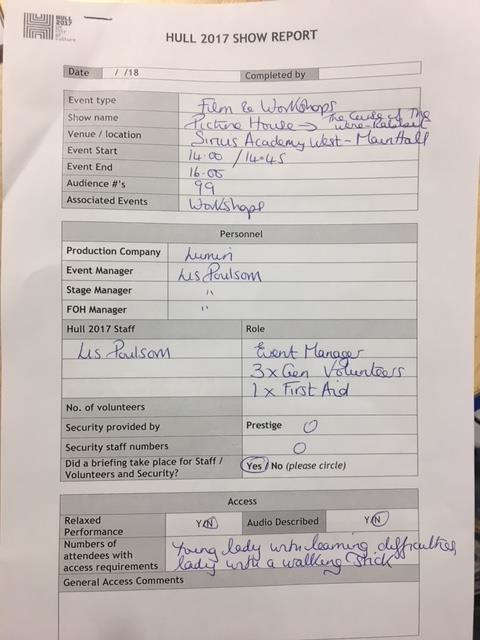 HULL 2017
HULL 2017 SHOW REPORT
Date / /18 Completed by
Event type Film & Workshops
Show name Picture House → The Curse of The Were-Rabbit
Venue / location Sirius Academy West - Main Hall
Event Start 14.00 / 14.45
Event End 16.00
Audience #'s 99
Associated Events Workshops
Personnel
Production Company Lumin
Event Manager Lis Poulsom
Stage Manager "
FOH Manager "
Hull 2017 Staff Role
Lis Poulsom Event Manager
3 x Gen Volunteers
1 x First Aid
No. of volunteers
Security provided by Prestige 0
Security staff numbers 0
Did a briefing take place for Staff / Volunteers and Security? Yes / No (please circle)
Access
Relaxed Performance Y/N Audio Described Y/N
Numbers of attendees with access requirements Young lady with learning difficulties,
lady with a walking stick
General Access Comments